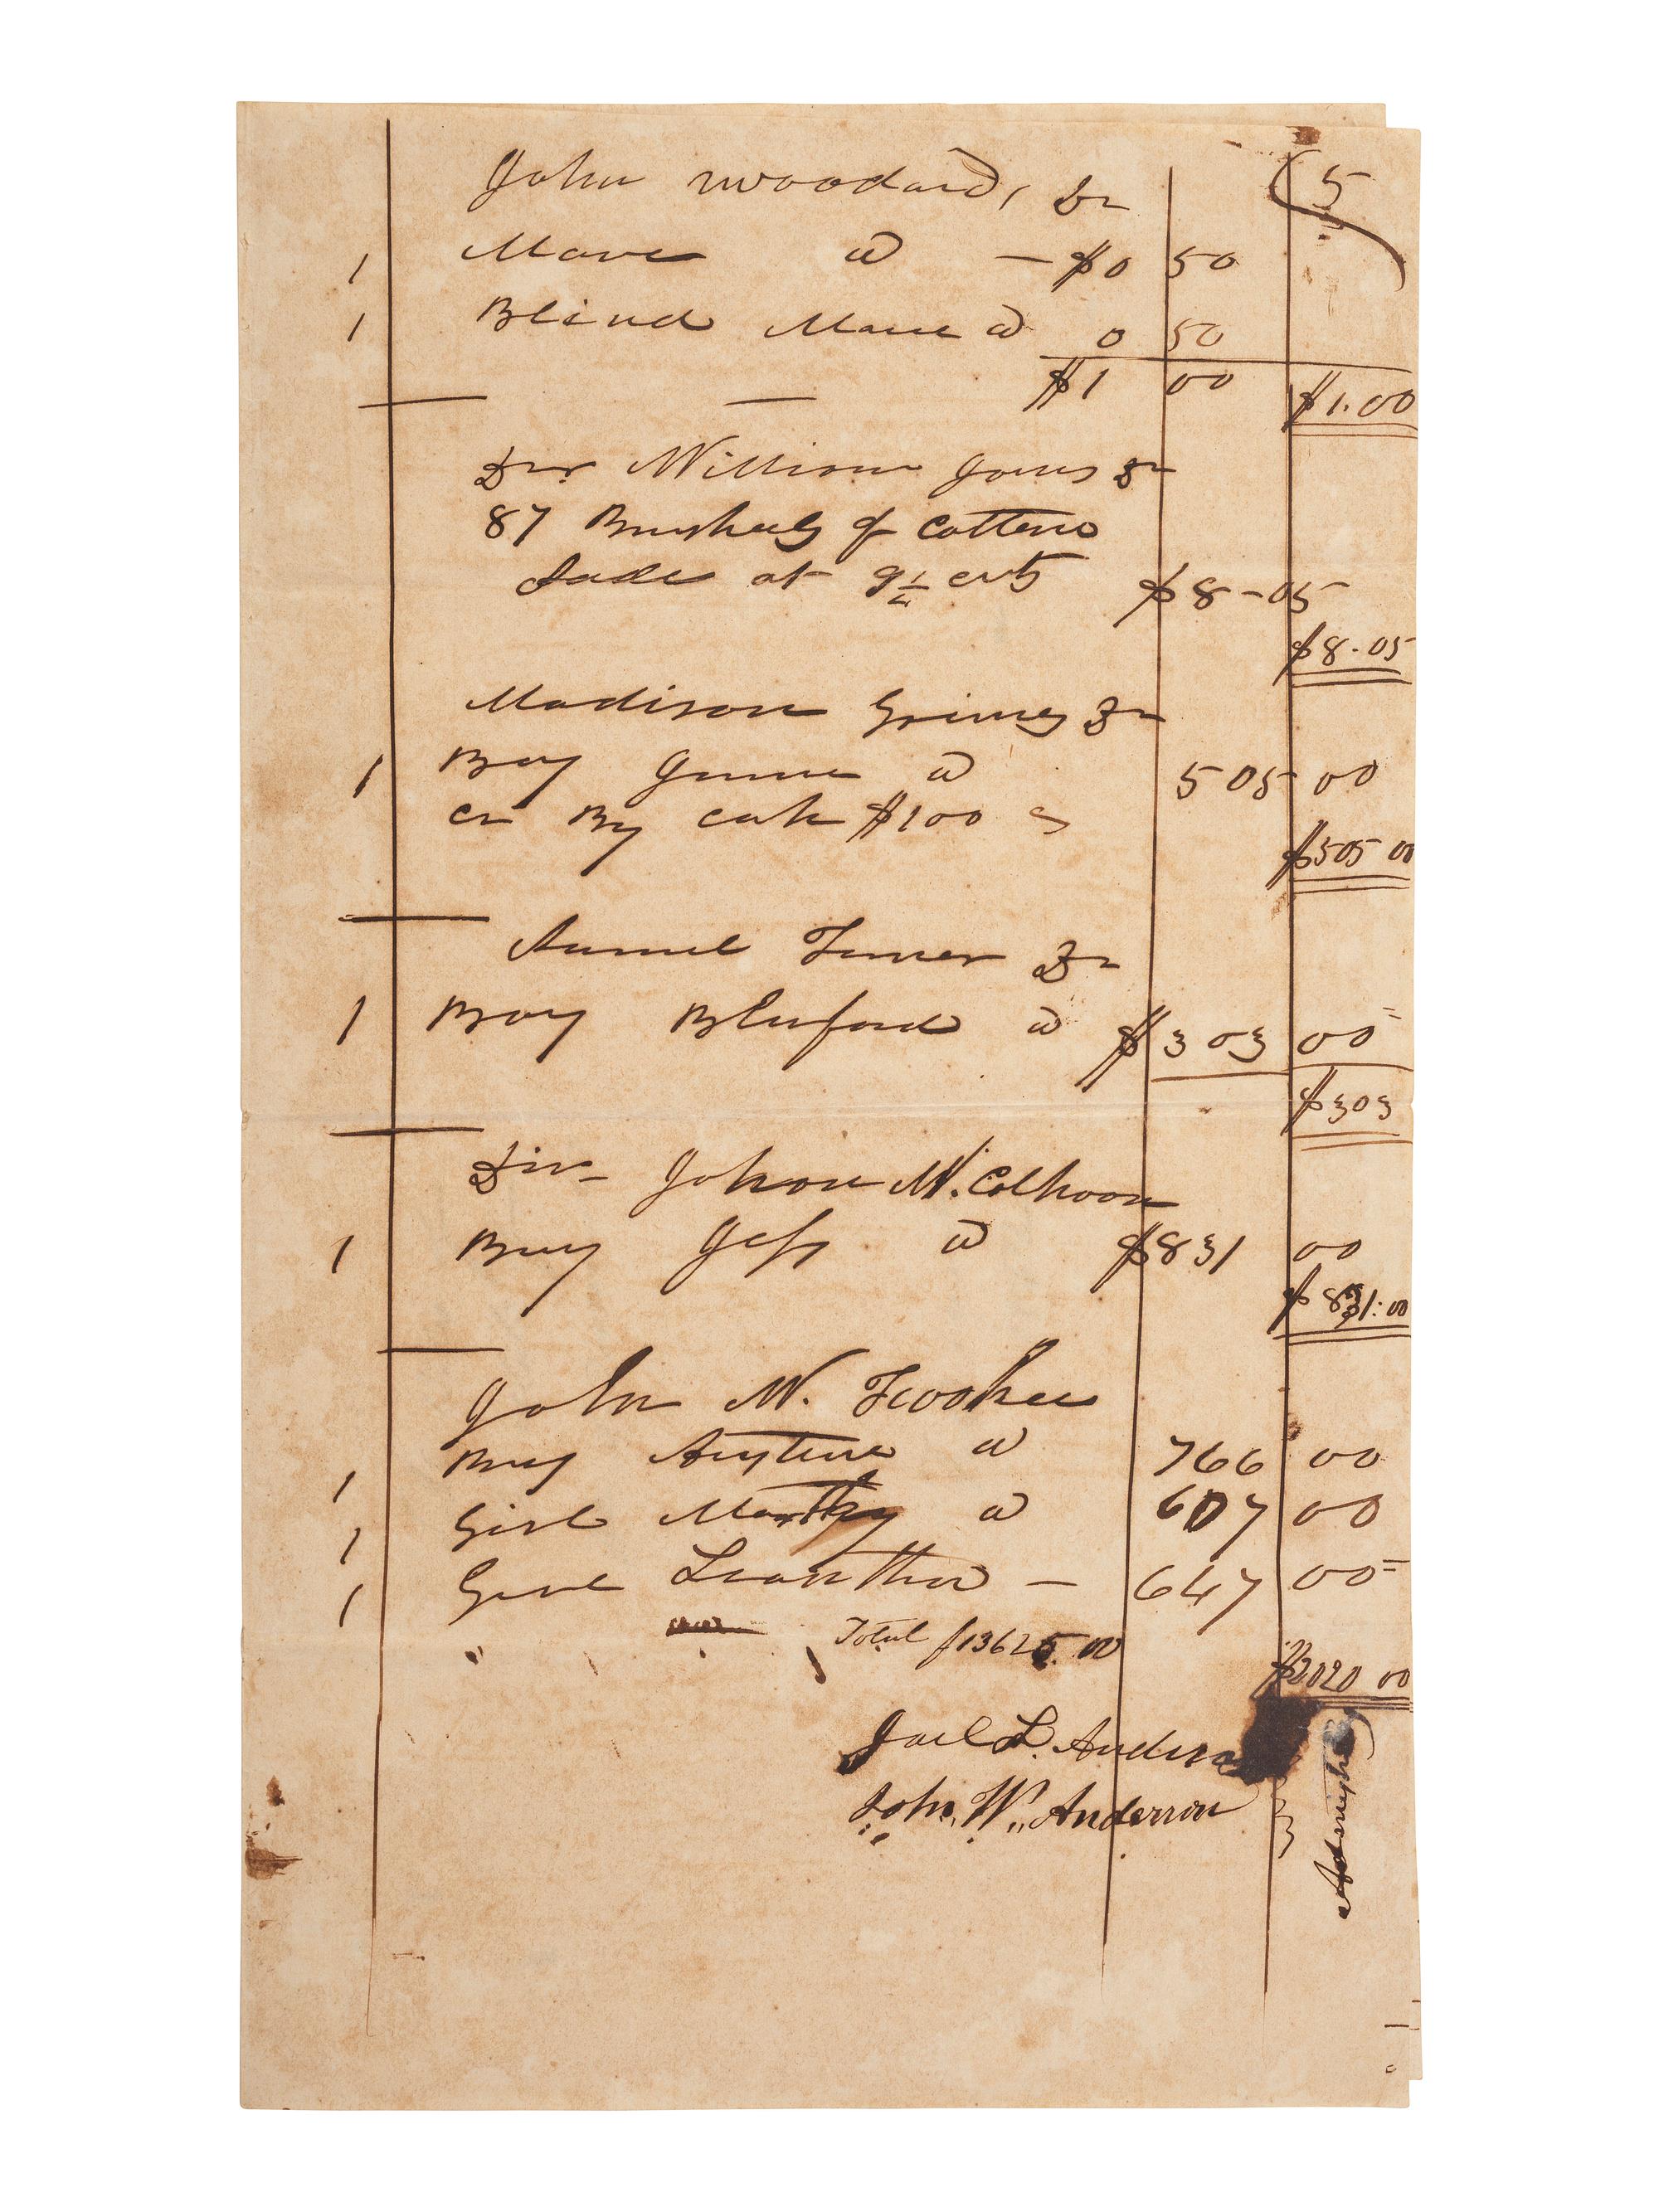 5
John Woodard, Dr
1 Mare @ — $0 50
1 Blind Mare @ 0 50
$1 00 $1.00
Dr William Jones Dr
87 Bushels of Cotten
Sade at 9¼ cnts $8-05
$8.05
Madison Grimes Dr
1 Boy @ 505 00
Cr By cash $100
$505 00
Samuel Turner Dr
1 Boy Bluford @ $303 00
$303
John W. Colhoon
1 Boy Jeff @ $831 00
$831.00
John W.
1 Boy @ 766 00
1 Girl @ 607 00
1 Girl — 647 00
Total $13625.00
$2020 00
Joel L. Anderson
John. W. Anderson